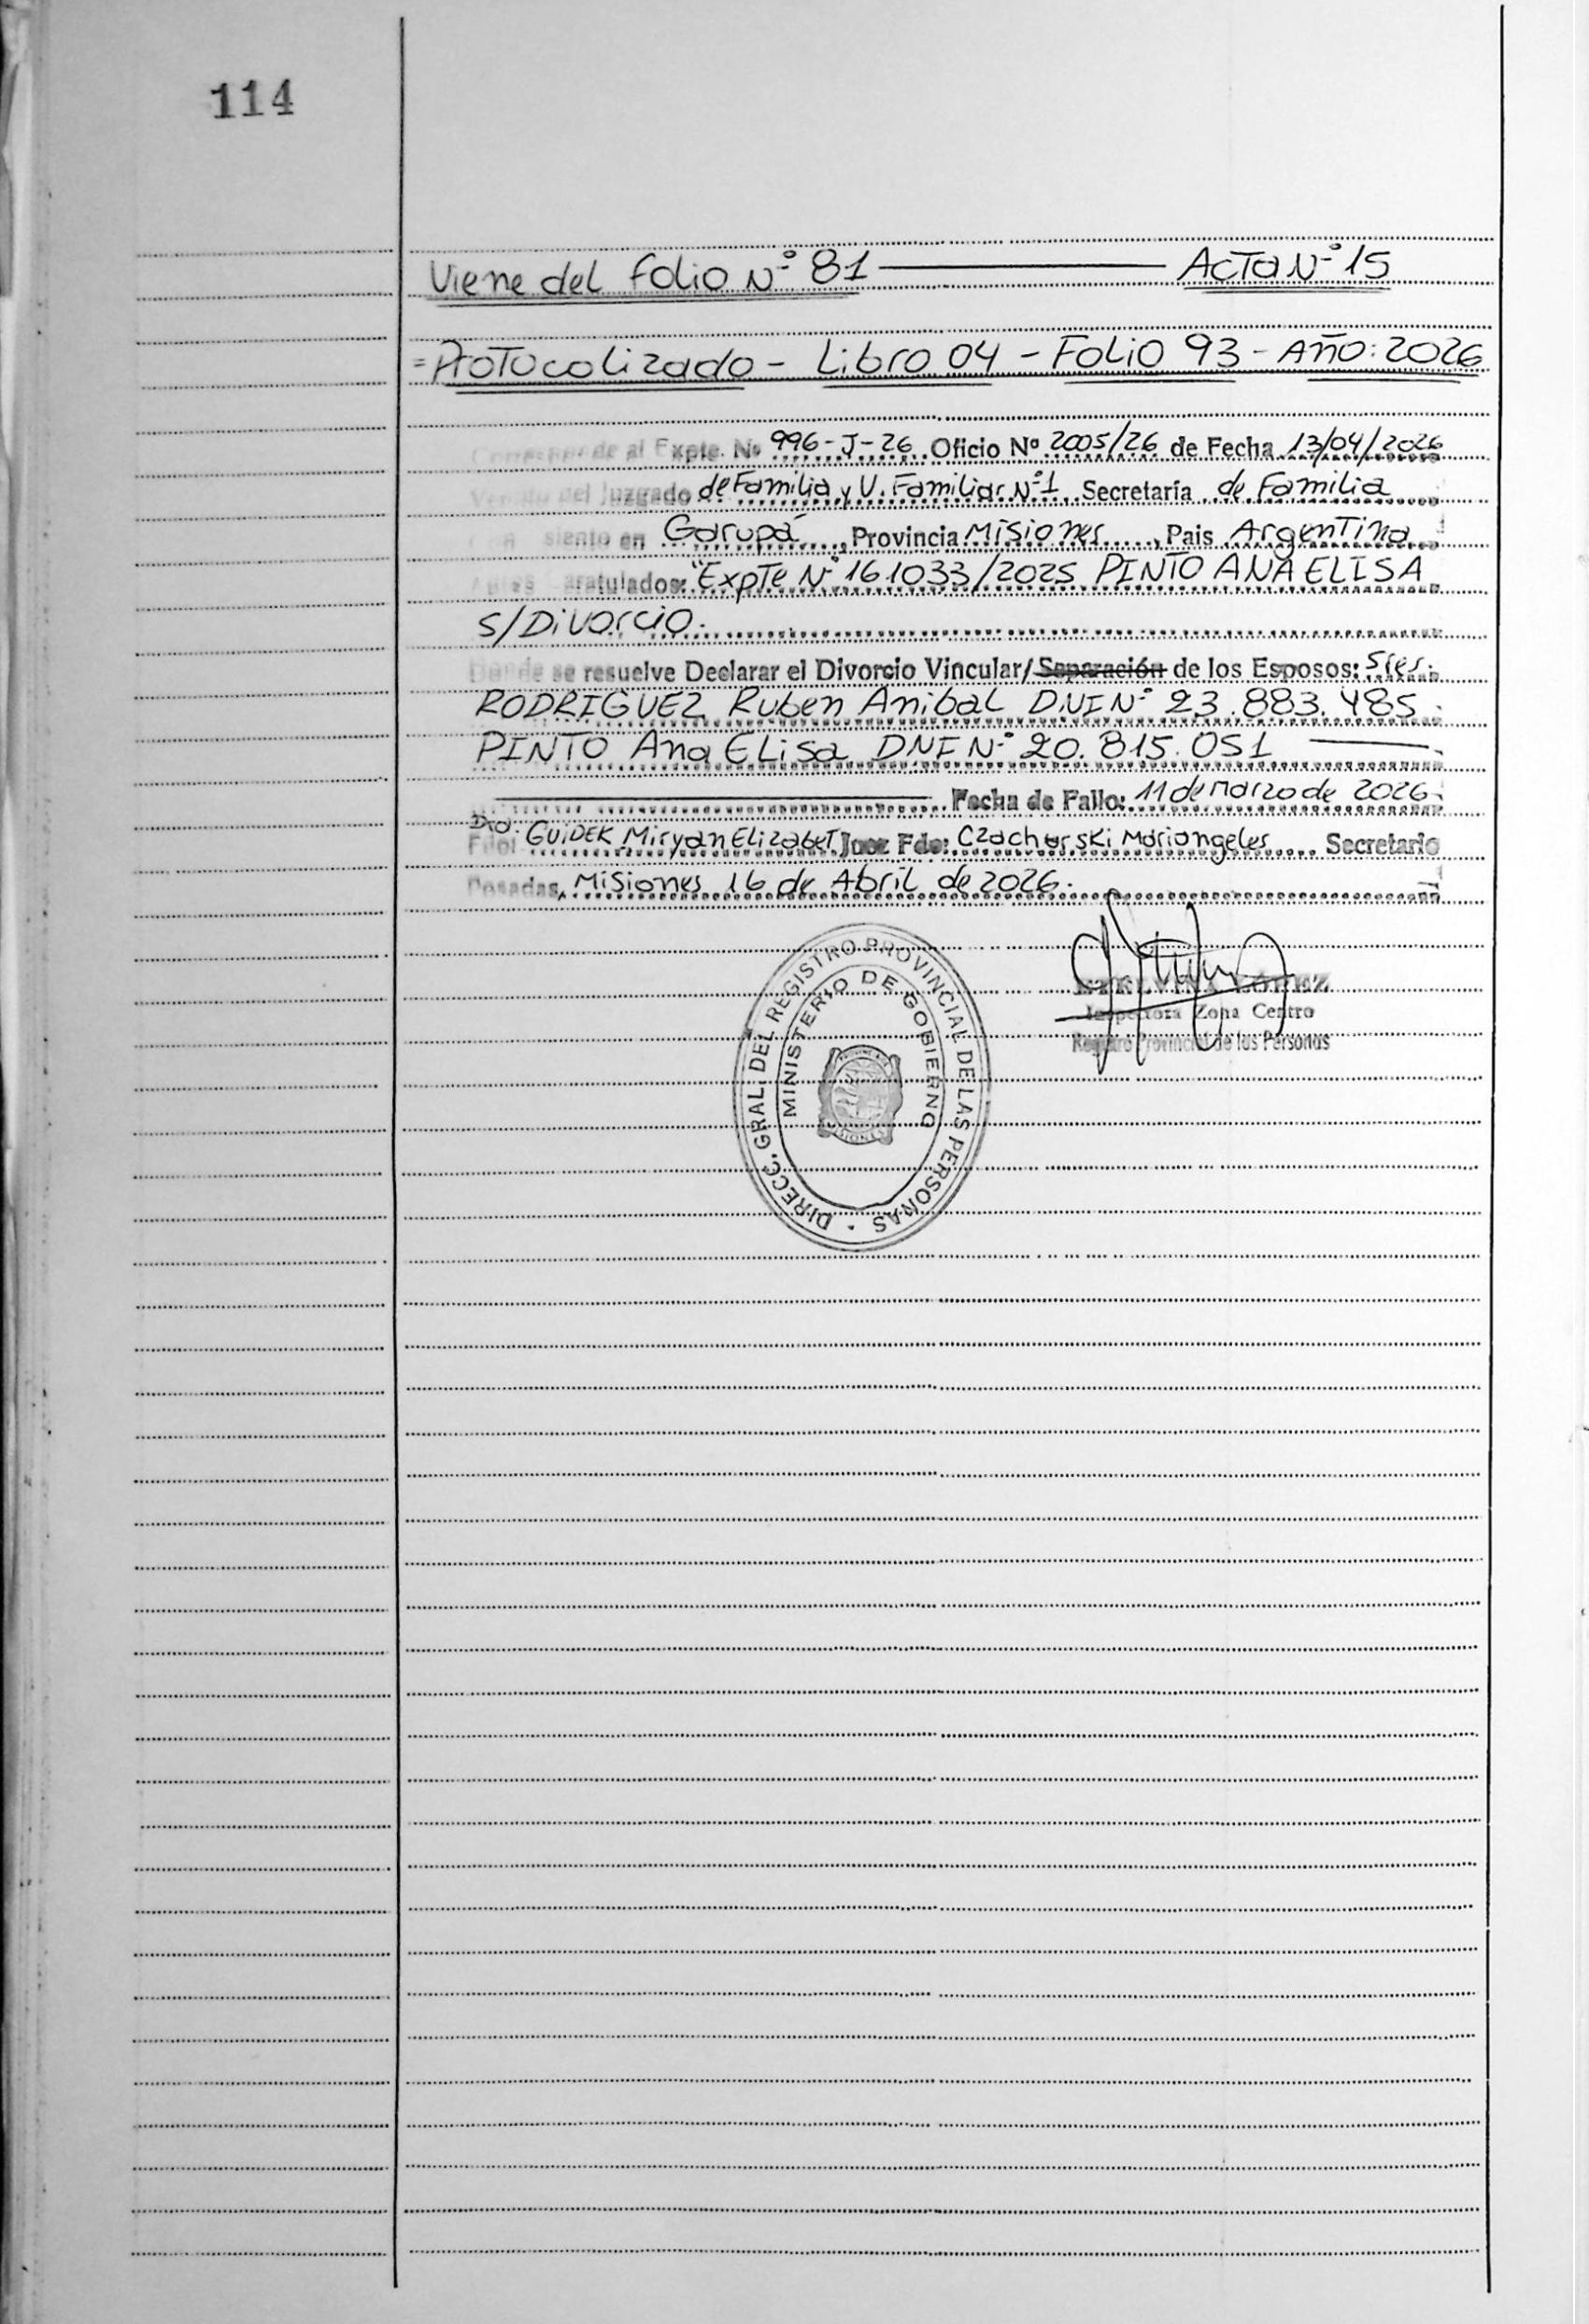 114
Viene del Folio N° 81 ——— Acta N° 15
= Protocolizado - Libro 04 - Folio 93 - Año: 2026
Corresponde al Expte. Nº 996-J-26 Oficio Nº 2005/26 de Fecha 13/04/2026
Venido del Juzgado de Familia y V. Familiar N°1 Secretaría de Familia
Con asiento en Garupá, Provincia Misiones, Pais Argentina
Autos Caratulados: "Expte N° 161033/2025 PINTO ANA ELISA
S/Divorcio.
Donde se resuelve Declarar el Divorcio Vincular/Separación de los Esposos: Sres.
RODRIGUEZ Ruben Anibal DNI N° 23.883.485
PINTO Ana Elisa DNI N° 20.815.051 ———
——— Fecha de Fallo: 11 de marzo de 2026
Fdo: Dra. GUIDEK Miryan Elizabet Juez Fdo: Czacharski Mariangeles Secretario
Posadas, Misiones 16 de Abril de 2026.
DIRECC. GRAL. DEL REGISTRO PROVINCIAL DE LAS PERSONAS
MINISTERIO DE GOBIERNO
MISIONES
LÓPEZ
Inspectora Zona Centro
Registro Provincial de las Personas